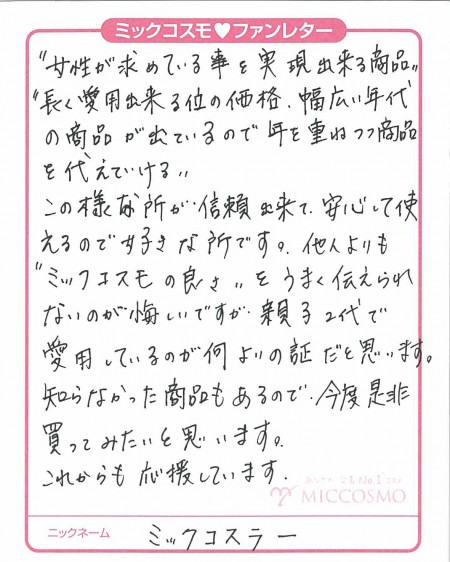 ミックコスモ♥ファンレター
"女性が求めている事を実現出来る商品"
"長く愛用出来る位の価格、幅広い年代
の商品が出ているので年を重ねつつ商品
を代えていける"
この様な所が、信頼出来て、安心して使
えるので好きな所です。他人よりも
"ミックコスモの良さ"をうまく伝えられ
ないのが悔しいですが、親子2代で
愛用しているのが何よりの証だと思います。
知らなかった商品もあるので、今度是非
買ってみたいと思います。
これからも応援しています。
No.1
MICCOSMO
ニックネーム ミックコスラー